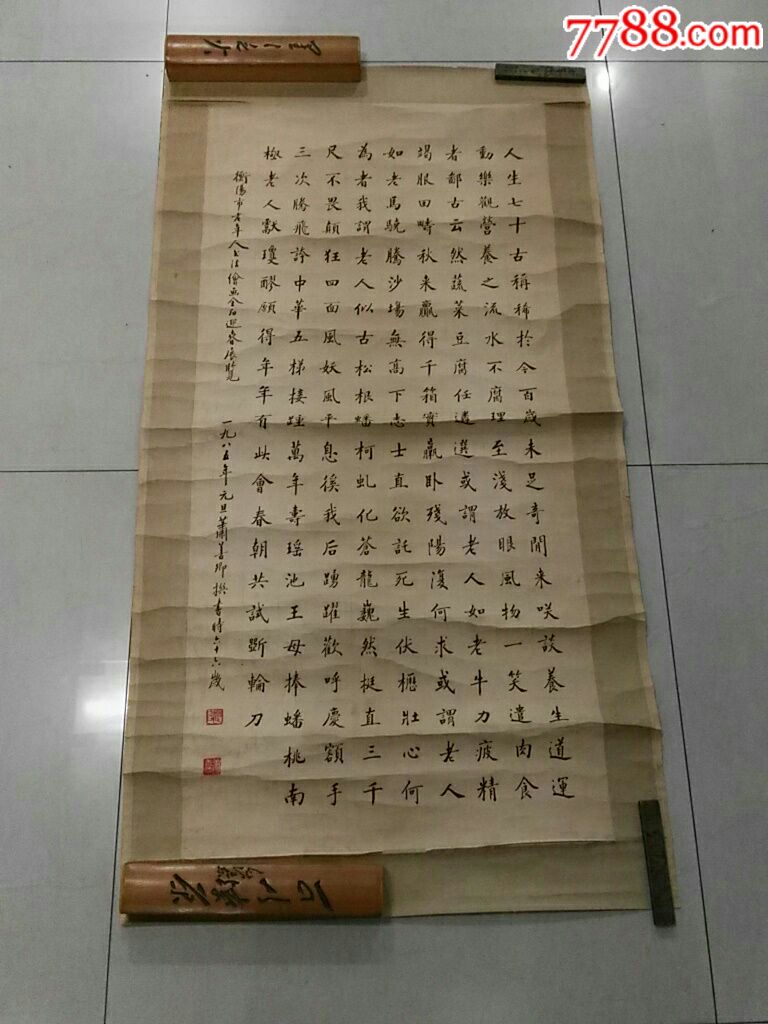 7788.com
人生七十古稱稀於今百歲未足奇閒来咲談養生道運
動樂觀營養之流水不腐理至淺放眼風物一笑遣肉食
者鄙古云然蔬菜豆腐任遴選或謂老人如老牛力疲精
竭服田疇秋来贏得千箱實羸卧殘陽復何求或謂老人
如老馬驍騰沙場無高下志士直欲託死生伏櫪壯心何
為者我謂老人似古松根蟠柯虬化蒼龍巍然挺直三千
尺不畏顛狂四面風妖風平息徯我后踴躍歡呼慶額手
三次騰飛誇中華五梯接踵萬年壽瑶池王母捧蟠桃南
極老人獻瓊醪願得年年有此會春朝共試斲輪刀
衡陽市老年人書法繪画金石迎春展覧
一九八五年元旦蕭善卿撰書時六十六歲